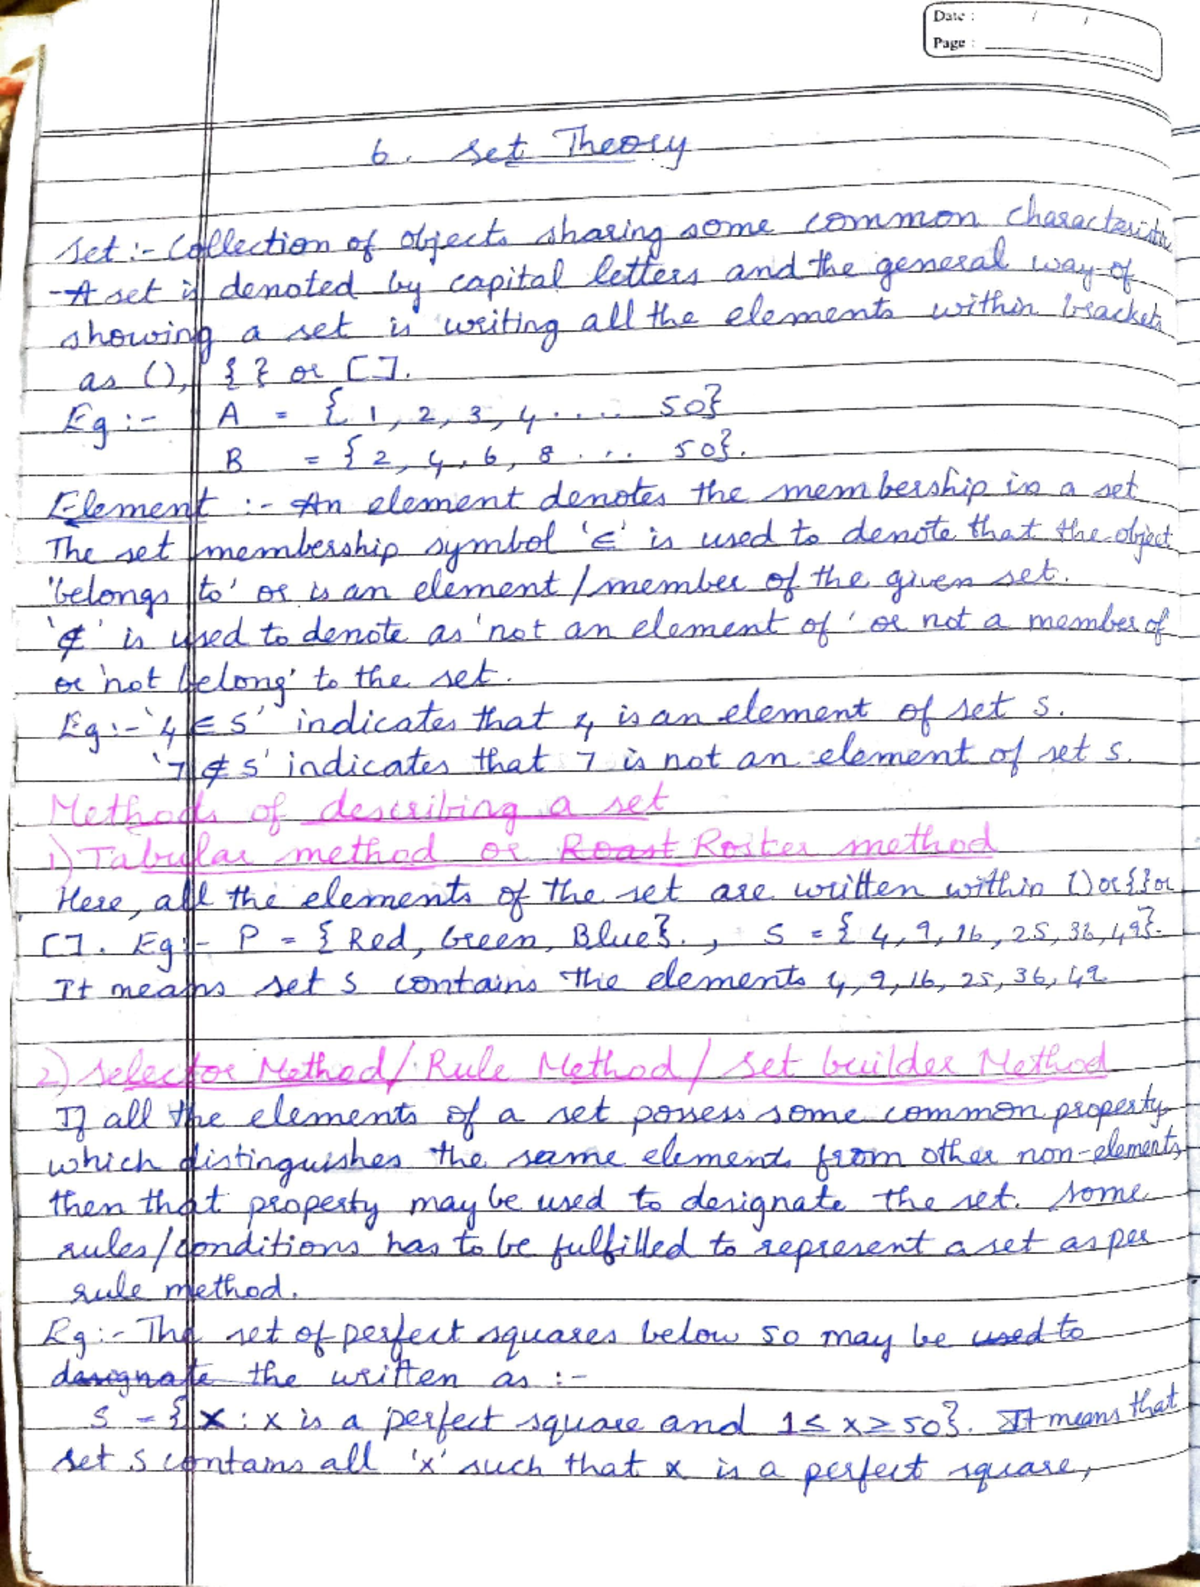 Date : / /
Page :
6. Set Theory
Set :- Collection of objects sharing some common characteristic
- A set is denoted by capital letters and the general way of
showing a set is writing all the elements within brackets
as (), { } or [ ].
Eg :- A = { 1, 2, 3, 4 .... 50}
B = { 2, 4, 6, 8 ... 50}.
Element :- An element denotes the membership in a set
The set membership symbol '∈' is used to denote that the object
'belongs to' or is an element / member of the given set.
'∉' is used to denote as 'not an element of' or not a member of
or 'not belong' to the set.
Eg :- '4 ∈ S' indicates that 4 is an element of set S.
'7 ∉ S' indicates that 7 is not an element of set S.
Methods of describing a set
1) Tabular method or Roast Roster method
Here, all the elements of the set are written within () or { } or
[ ]. Eg :- P = { Red, Green, Blue}. , S = { 4, 9, 16, 25, 36, 49}.
It means set S contains the elements 4, 9, 16, 25, 36, 49
2) Selector Method / Rule Method / Set builder Method
If all the elements of a set possess some common property
which distinguishes the same elements from other non-elements,
then that property may be used to designate the set. Some
rules / conditions has to be fulfilled to represent a set as per
rule method.
Eg :- The set of perfect squares below 50 may be used to
designate the written as :-
S = { x : x is a perfect square and 1 ≤ x ≥ 50}. It means that
set S contains all 'x' such that x is a perfect square,